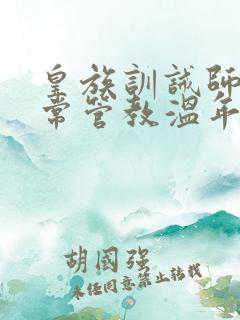 皇族訓誡師
常管教溫年
胡國强
未经同意禁止转载